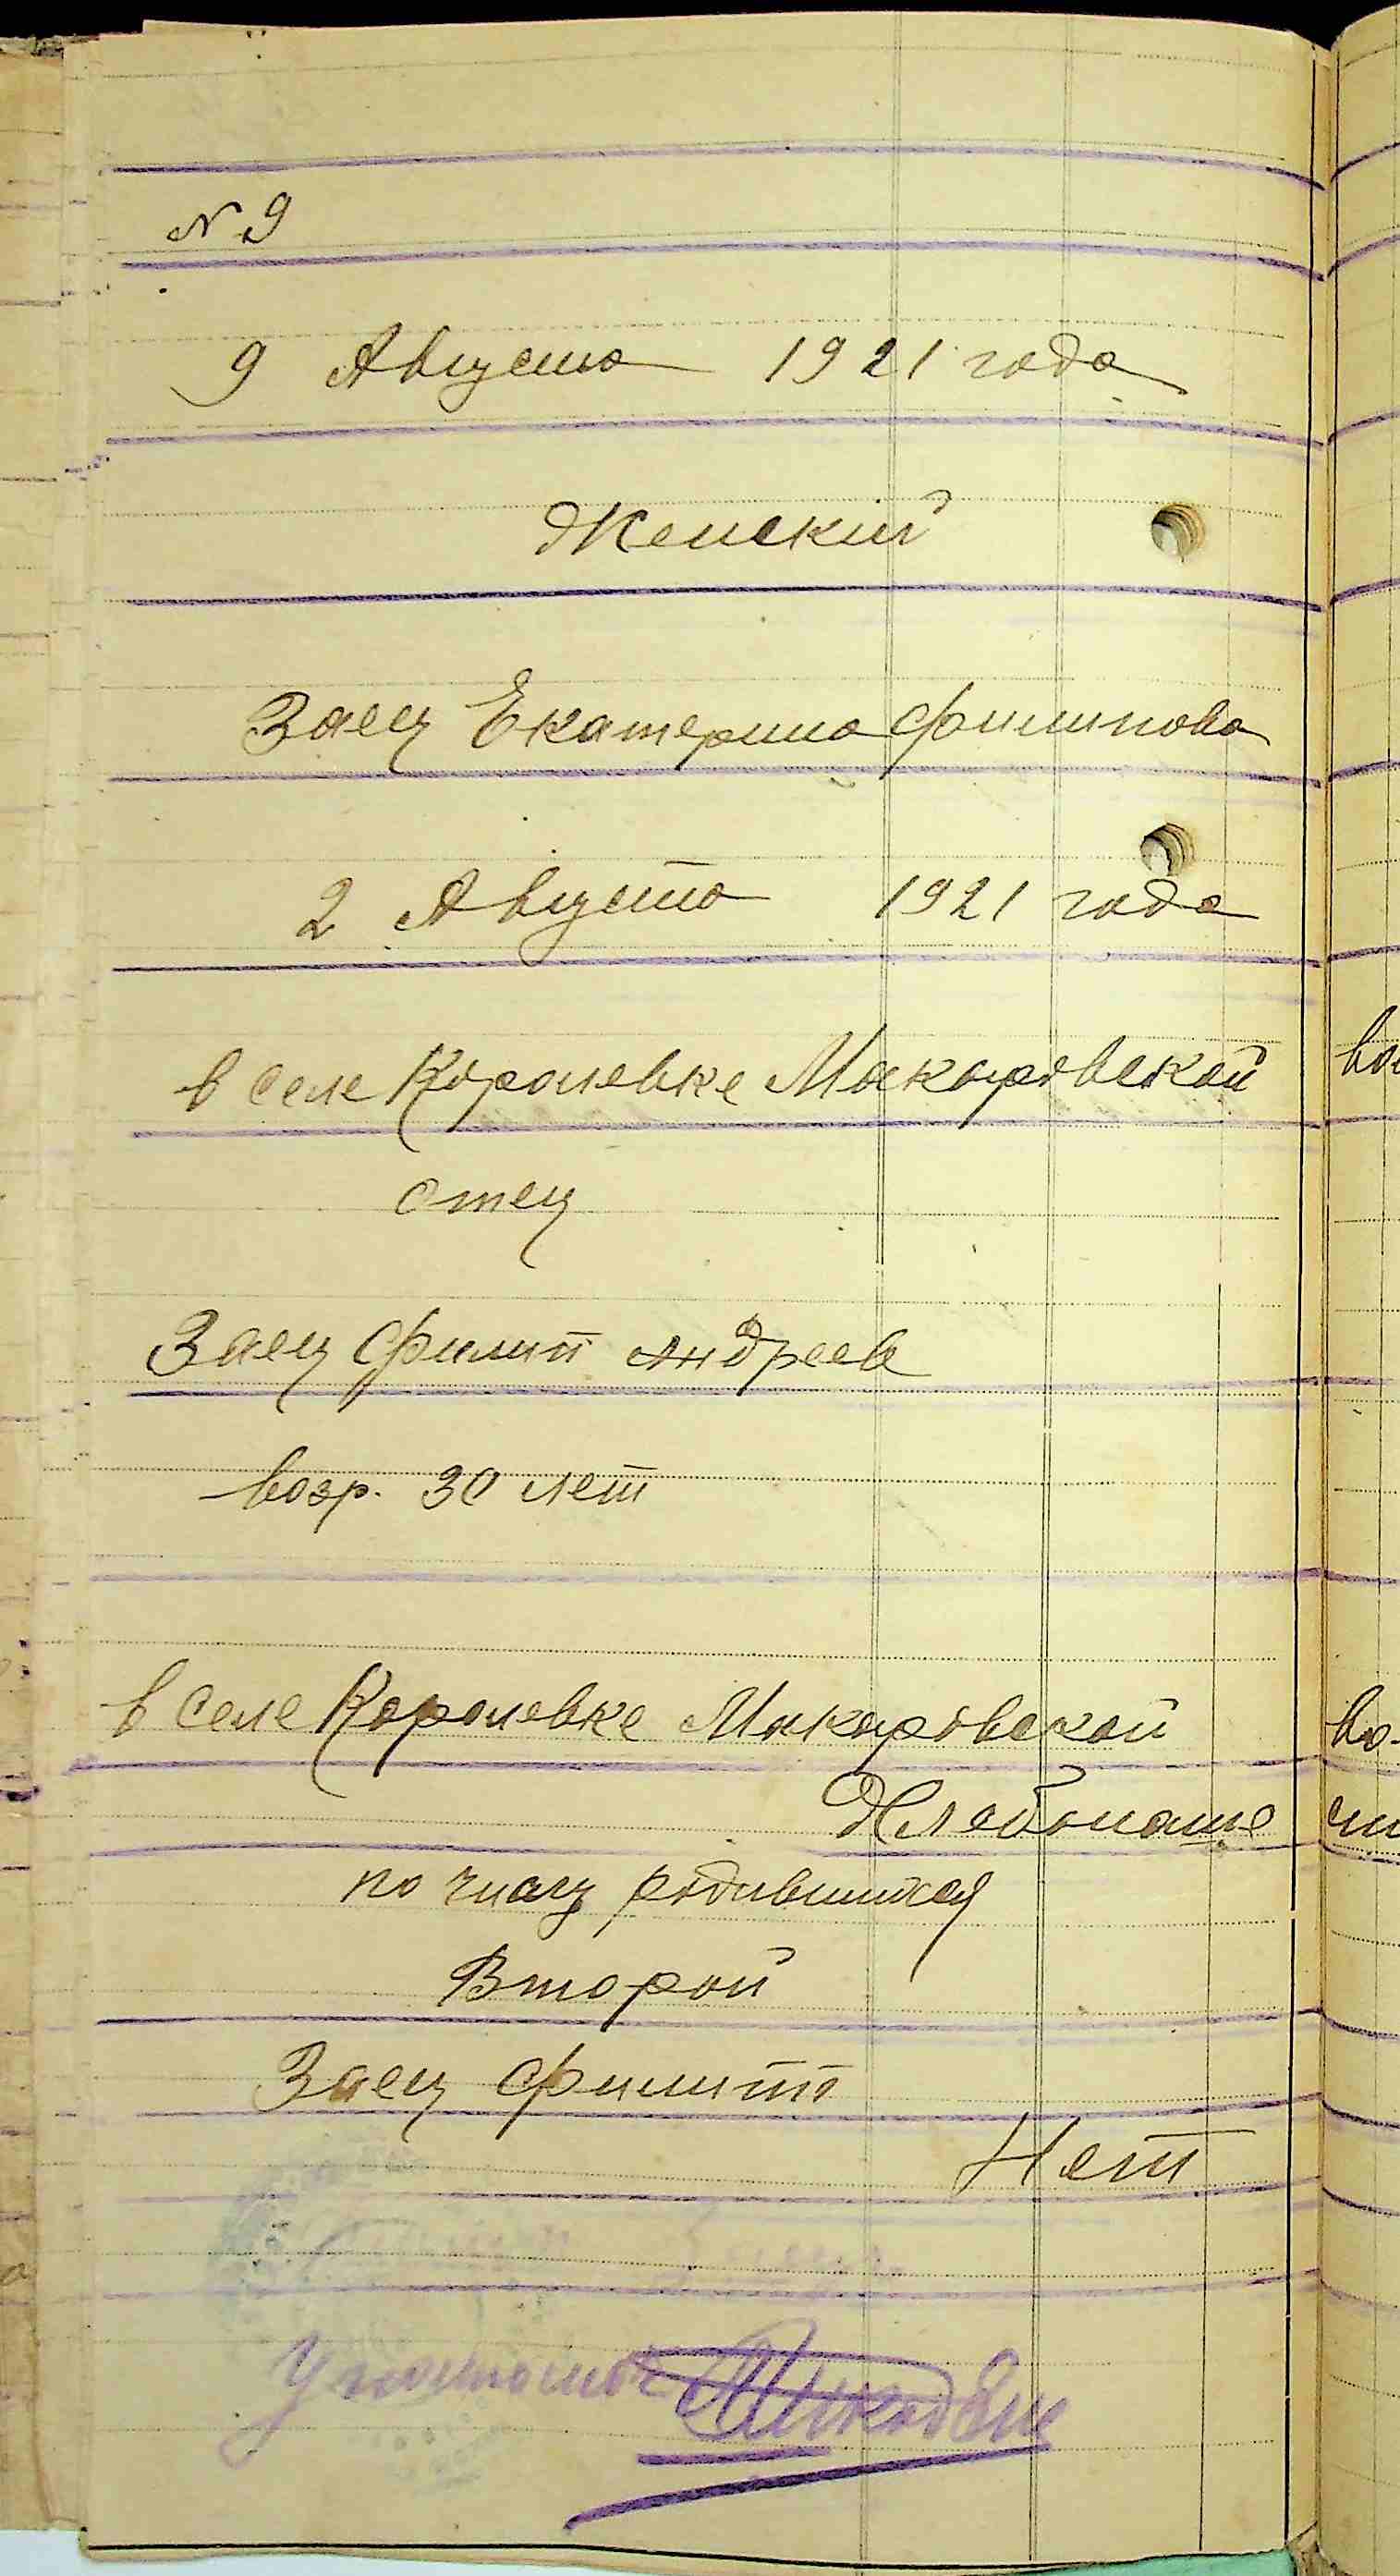 № 9
9 Августа 1921 года
Женский
Заец Екатерина Филипова
2 Августа 1921 года
в селе Королевке Макаровской
отец
Заец Филип Андреев
возр. 30 лет
в селе Королевке Макаровской
Хлебопаше
по числу родившихся
Второй
Заец Филипп
Нет